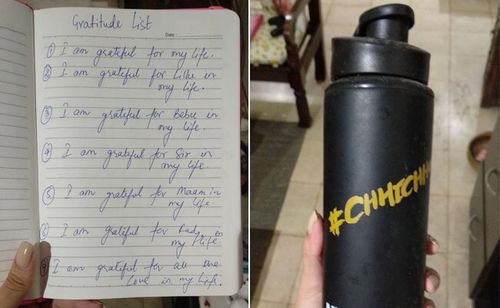 Gratitude List
Date:
① I am grateful for my life.
② I am grateful for Lilke in
my life.
③ I am grateful for Bebu in
my life.
④ I am grateful for Sir in
my life
⑤ I am grateful for Maam in
my life.
I am grateful for in
my life
I am grateful for all the
Love in my life.
#CHHICHH